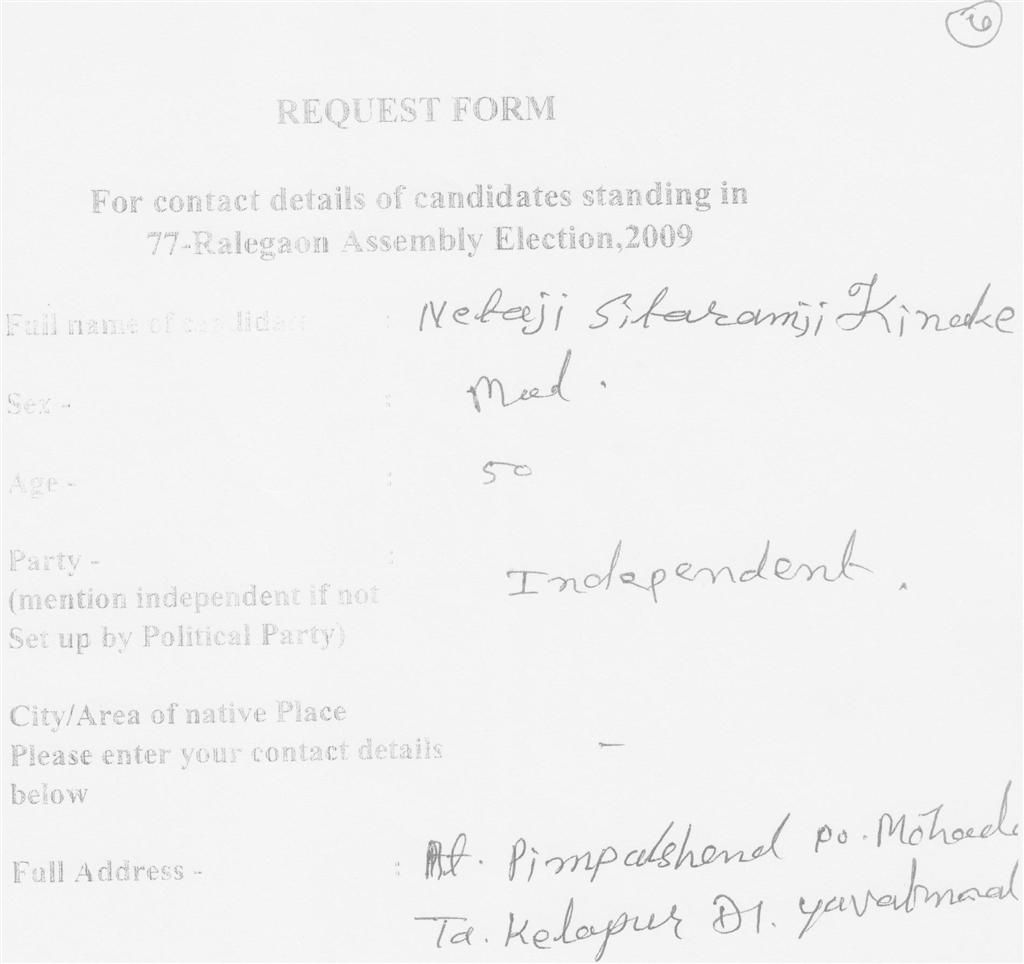 REQUEST FORM
For contact details of candidates standing in
77-Ralegaon Assembly Election,2009
Full name of candidate : Netaji Sitaramji Kinake
Sex - :
Age - : 50
Party - :
(mention independent if not Independent.
Set up by Political Party)
City/Area of native Place
Please enter your contact details –
below
Full Address - : At. Pimpalshend po. Mohad
Ta. Kelapur Dt. yavatmaal